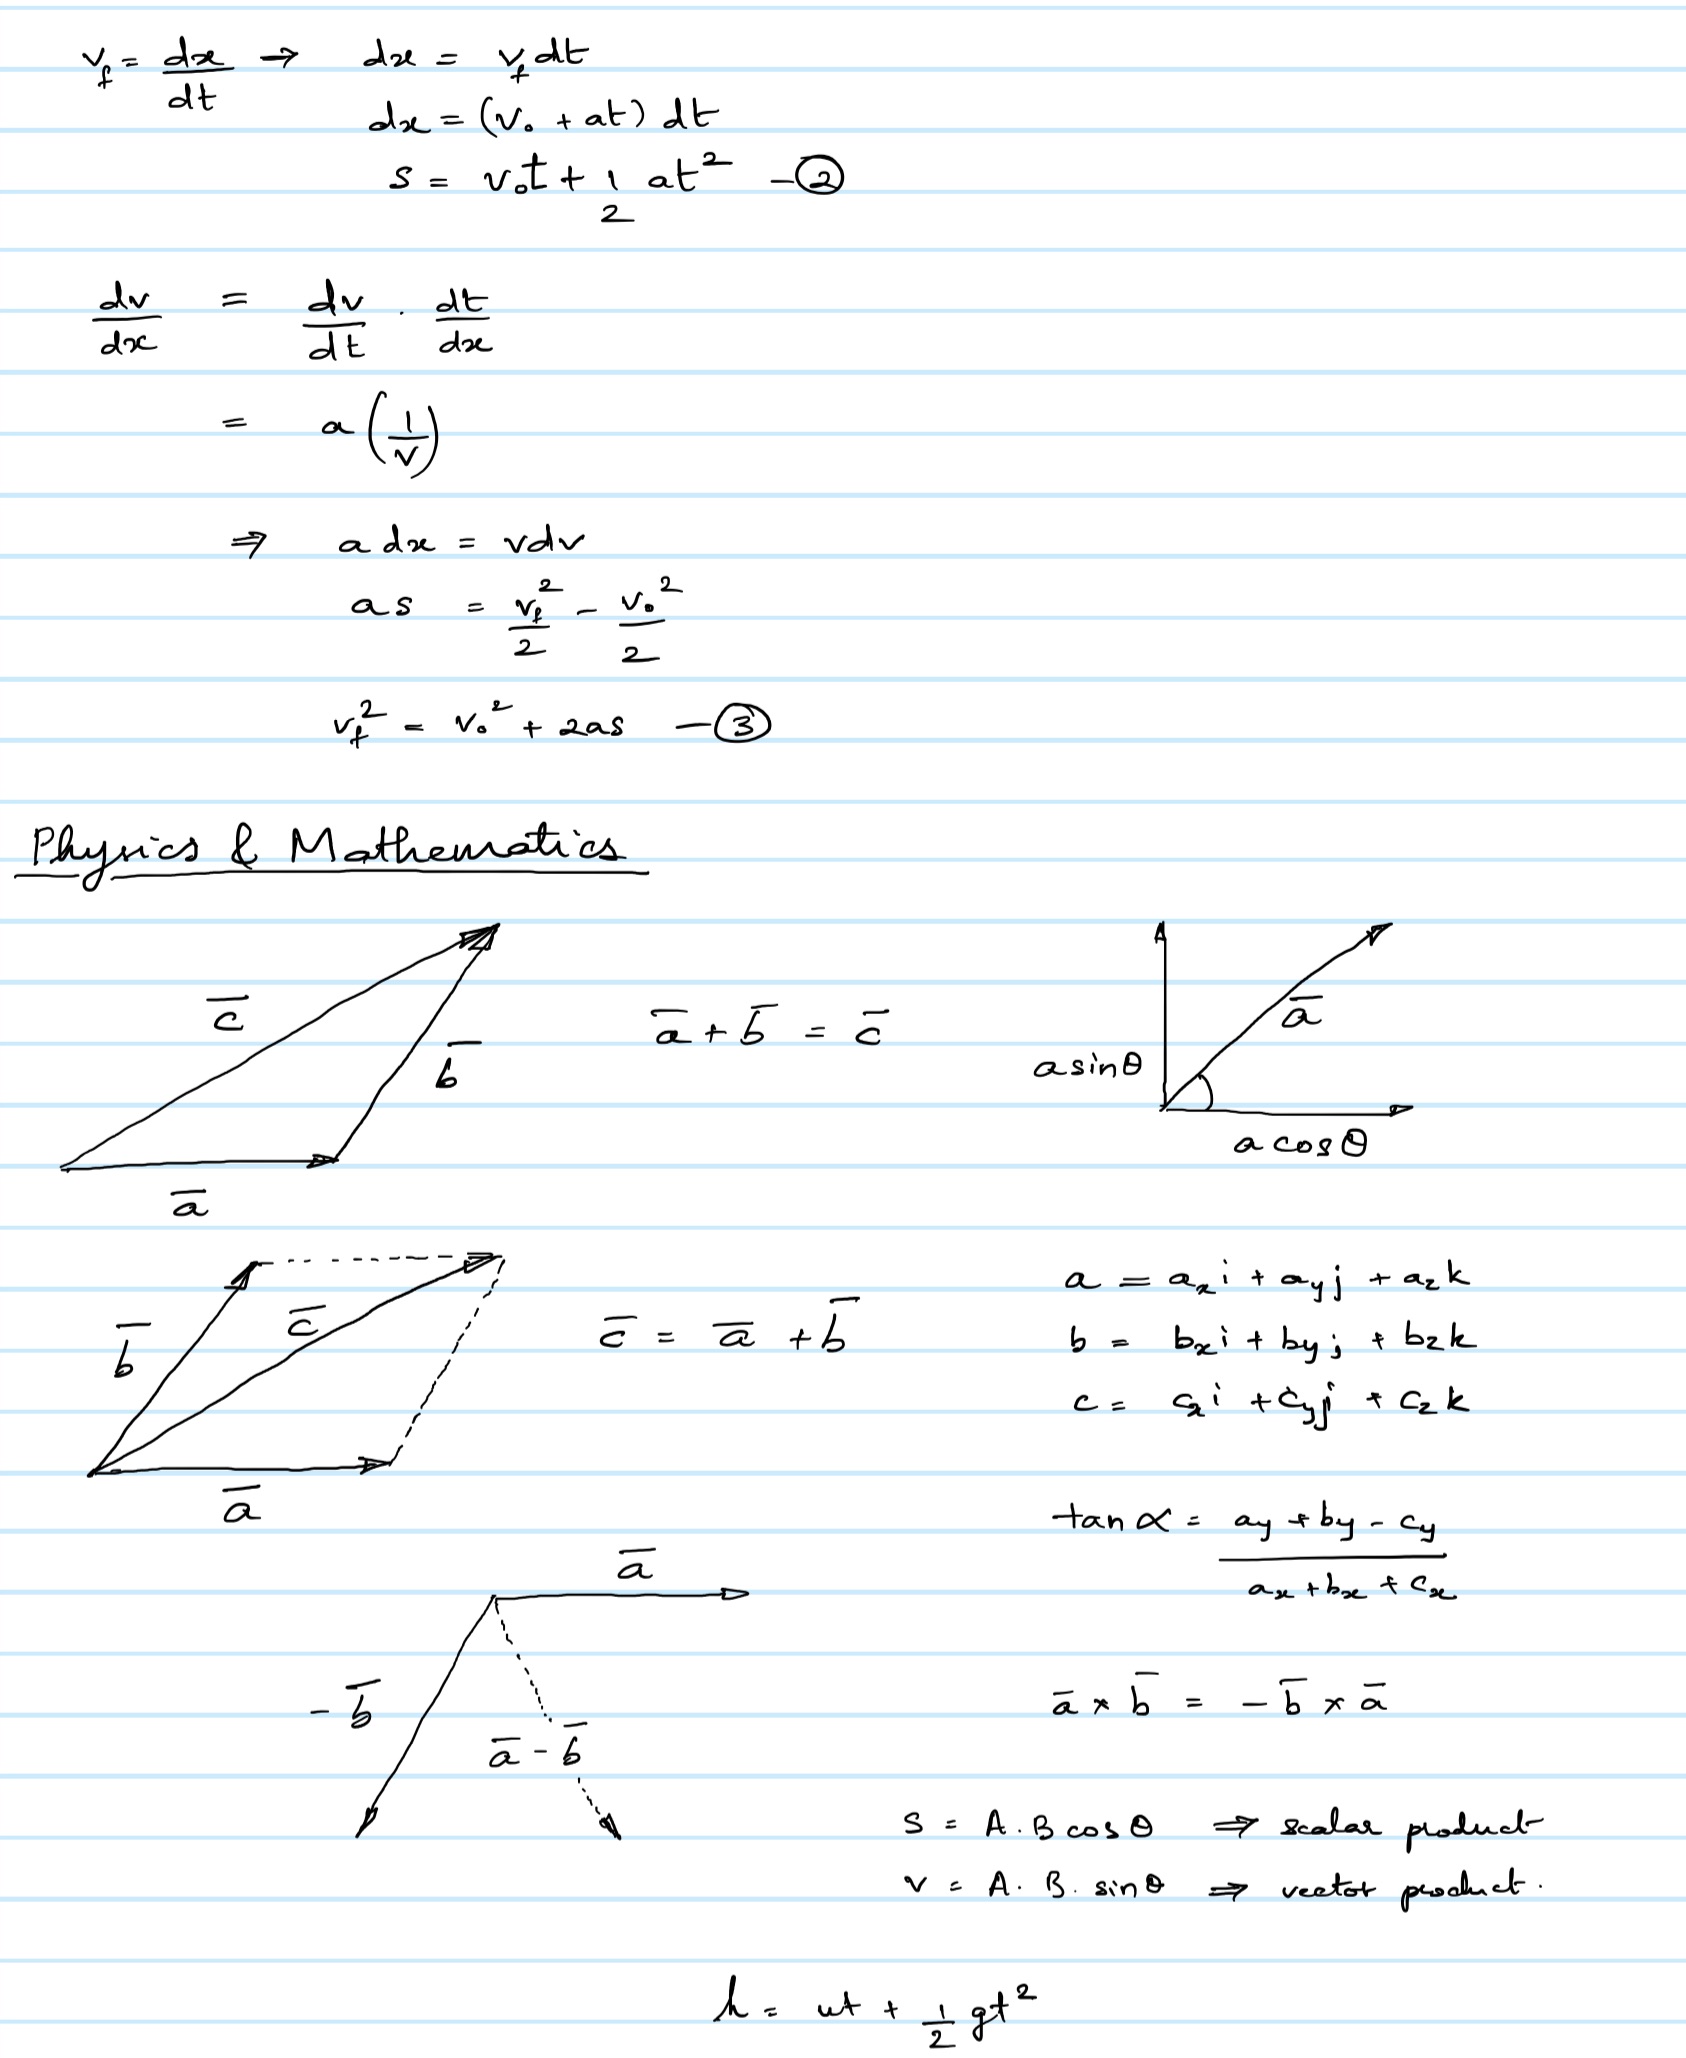 v_f = dx/dt → dx = v_f dt
dx = (v₀ + at) dt
s = v₀t + 1/2 at² - ②
dv/dx = dv/dt . dt/dx
= a (1/v)
⇒ a dx = vdv
as = v_f²/2 - v₀²/2
v_f² = v₀² + 2as - ③
Physics & Mathematics
c̅
b̅
a̅
a̅ + b̅ = c̅
a̅
a sinθ
a cosθ
b̅
c̅
a̅
c̅ = a̅ + b̅
a = aₓi + a_yj + a_zk
b = bₓi + b_yj + b_zk
c = cₓi + c_yj + c_zk
tan α = (a_y + b_y - c_y)/(aₓ + bₓ + cₓ)
a̅
- b̅
a̅ - b̅
a̅ × b̅ = - b̅ × a̅
s = A . B cos θ ⇒ scalar product
v = A . B . sinθ ⇒ vector product.
h = ut + 1/2 gt²